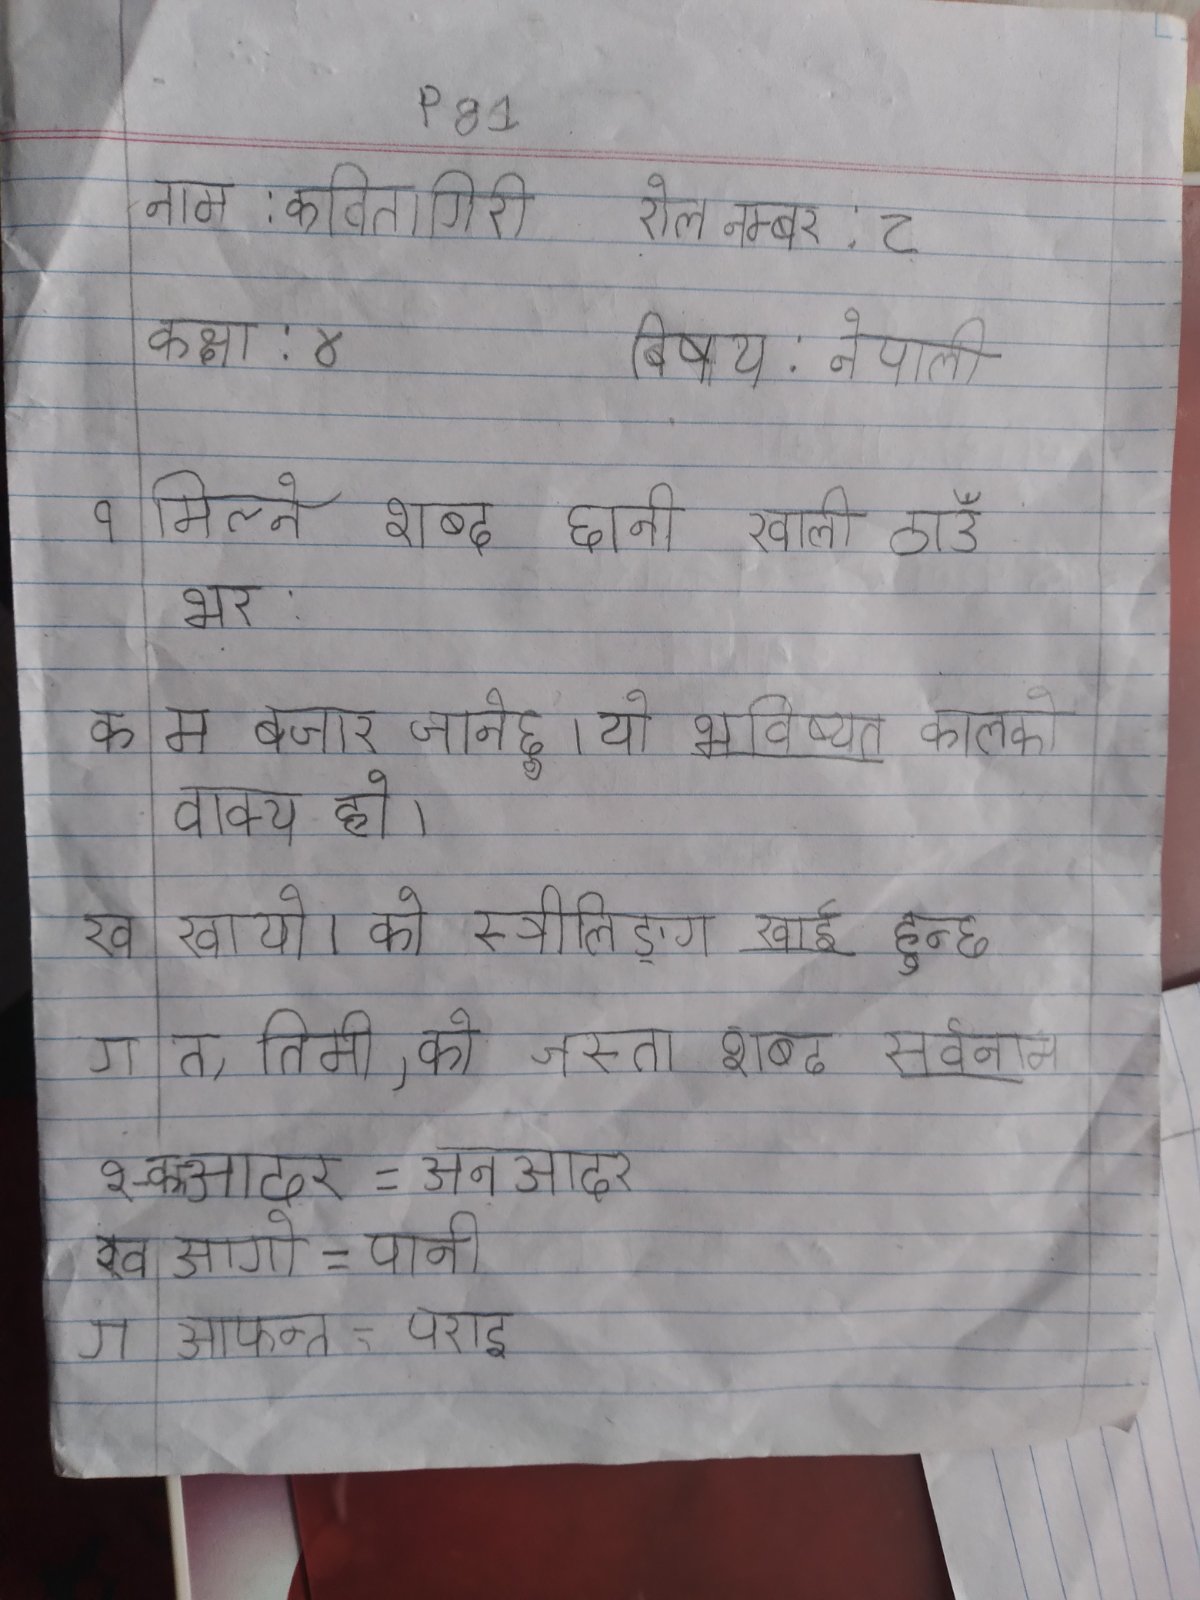 P 81
नाम : कविता गिरी रोल नम्बर : ८
कक्षा : ४ बिषय : नेपाली
१ मिल्ने शब्द छानी खाली ठाउँ
भर :
क म बजार जानेछु । यो भविष्यत कालको
वाक्य हो ।
ख खायो । को स्त्रीलिङ्ग खाई हुन्छ
ग त, तिमी , को जस्ता शब्द सर्वनाम
२ क आदर = अन आदर
ख आगो = पानी
ग आफन्त = पराइ